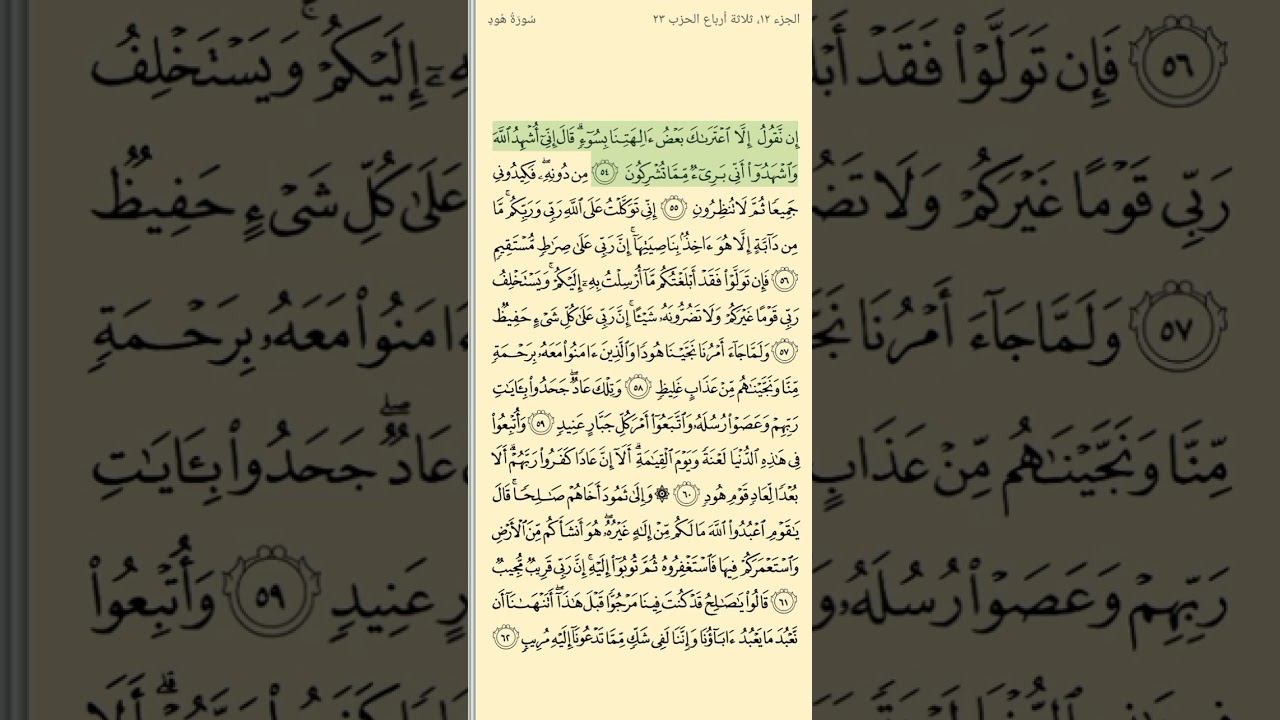 الجزء ١٢، ثلاثة أرباع الحزب ٢٣
سُورَةُ هُودٍ
إِن نَّقُولُ إِلَّا ٱعْتَرَىٰكَ بَعْضُ ءَالِهَتِنَا بِسُوٓءٍ ۗ قَالَ إِنِّىٓ أُشْهِدُ ٱللَّهَ
وَٱشْهَدُوٓا۟ أَنِّى بَرِىٓءٌ مِّمَّا تُشْرِكُونَ ٥٤ مِن دُونِهِۦ ۖ فَكِيدُونِى
جَمِيعًا ثُمَّ لَا تُنظِرُونِ ٥٥ إِنِّى تَوَكَّلْتُ عَلَى ٱللَّهِ رَبِّى وَرَبِّكُم ۚ مَّا
مِن دَآبَّةٍ إِلَّا هُوَ ءَاخِذٌۢ بِنَاصِيَتِهَآ ۚ إِنَّ رَبِّى عَلَىٰ صِرَٰطٍ مُّسْتَقِيمٍ
٥٦ فَإِن تَوَلَّوْا۟ فَقَدْ أَبْلَغْتُكُم مَّآ أُرْسِلْتُ بِهِۦٓ إِلَيْكُمْ ۚ وَيَسْتَخْلِفُ
رَبِّى قَوْمًا غَيْرَكُمْ وَلَا تَضُرُّونَهُۥ شَيْـًٔا ۚ إِنَّ رَبِّى عَلَىٰ كُلِّ شَىْءٍ حَفِيظٌ
٥٧ وَلَمَّا جَآءَ أَمْرُنَا نَجَّيْنَا هُودًا وَٱلَّذِينَ ءَامَنُوا۟ مَعَهُۥ بِرَحْمَةٍ
مِّنَّا وَنَجَّيْنَٰهُم مِّنْ عَذَابٍ غَلِيظٍ ٥٨ وَتِلْكَ عَادٌ ۖ جَحَدُوا۟ بِـَٔايَٰتِ
رَبِّهِمْ وَعَصَوْا۟ رُسُلَهُۥ وَٱتَّبَعُوٓا۟ أَمْرَ كُلِّ جَبَّارٍ عَنِيدٍ ٥٩ وَأُتْبِعُوا۟
فِى هَٰذِهِ ٱلدُّنْيَا لَعْنَةً وَيَوْمَ ٱلْقِيَٰمَةِ ۗ أَلَآ إِنَّ عَادًا كَفَرُوا۟ رَبَّهُمْ ۗ أَلَا
بُعْدًا لِّعَادٍ قَوْمِ هُودٍ ٦٠ ۞ وَإِلَىٰ ثَمُودَ أَخَاهُمْ صَٰلِحًا ۚ قَالَ
يَٰقَوْمِ ٱعْبُدُوا۟ ٱللَّهَ مَا لَكُم مِّنْ إِلَٰهٍ غَيْرُهُۥ ۖ هُوَ أَنشَأَكُم مِّنَ ٱلْأَرْضِ
وَٱسْتَعْمَرَكُمْ فِيهَا فَٱسْتَغْفِرُوهُ ثُمَّ تُوبُوٓا۟ إِلَيْهِ ۚ إِنَّ رَبِّى قَرِيبٌ مُّجِيبٌ
٦١ قَالُوا۟ يَٰصَٰلِحُ قَدْ كُنتَ فِينَا مَرْجُوًّا قَبْلَ هَٰذَآ ۖ أَتَنْهَىٰنَآ أَن
نَّعْبُدَ مَا يَعْبُدُ ءَابَآؤُنَا وَإِنَّنَا لَفِى شَكٍّ مِّمَّا تَدْعُونَآ إِلَيْهِ مُرِيبٍ ٦٢